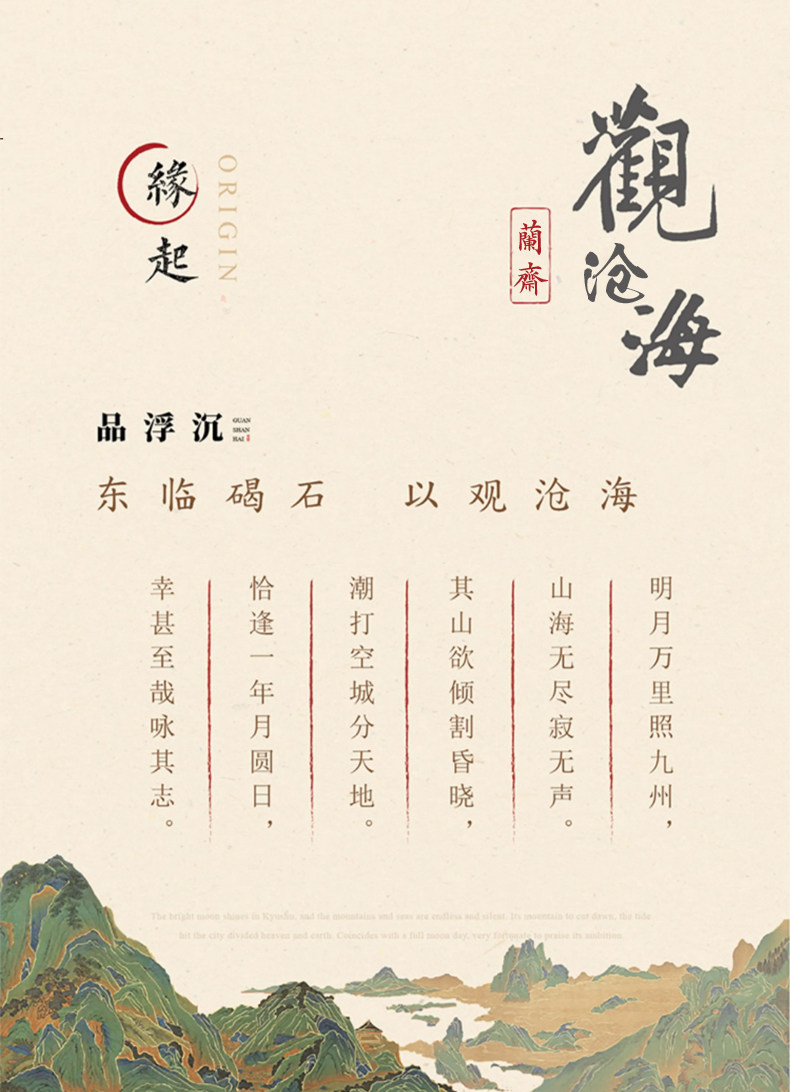 觀沧海
蘭齋
緣起
ORIGIN
品浮沉
GUAN
SHAN
HAI
东临碣石 以观沧海
明月万里照九州，
山海无尽寂无声。
其山欲倾割昏晓，
潮打空城分天地。
恰逢一年月圆日，
幸甚至哉咏其志。
The bright moon shines in Kyushu, and the mountains and seas are endless and silent. Its mountain to cut dawn, the tide
hit the city divided heaven and earth. Coincides with a full moon day, very fortunate to praise its ambition.